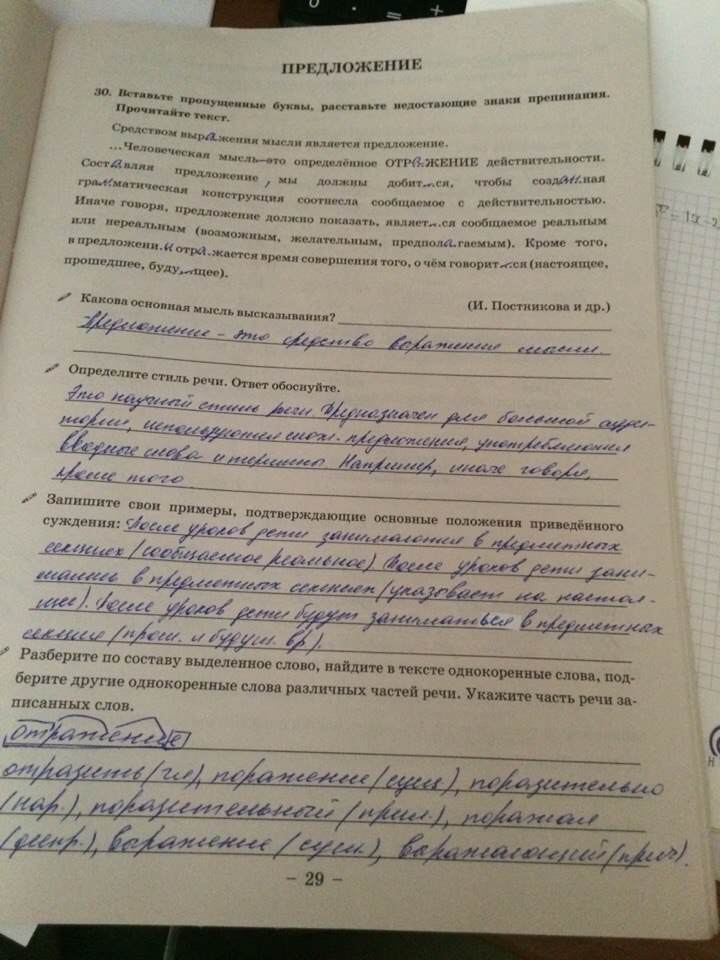 ПРЕДЛОЖЕНИЕ
30. Вставьте пропущенные буквы, расставьте недостающие знаки препинания.
Прочитайте текст.
Средством выражения мысли является предложение.
...Человеческая мысль–это определённое ОТРАЖЕНИЕ действительности.
Составляя предложение, мы должны добит..ся, чтобы созданная
грамматическая конструкция соотнесла сообщаемое с действительностью.
Иначе говоря, предложение должно показать, являет..ся сообщаемое реальным
или нереальным (возможным, желательным, предполагаемым). Кроме того,
в предложении отражается время совершения того, о чём говорит..ся (настоящее,
прошедшее, буду..щее).
(И. Постникова и др.)
Какова основная мысль высказывания?
Предложение – это средство выражения мысли.
Определите стиль речи. Ответ обоснуйте.
Это научный стиль речи. Предназначен для большой ауди-
тории, используются слож. предложения, употребляются
вводные слова и термины. Например, иначе говоря,
кроме того
Запишите свои примеры, подтверждающие основные положения приведённого
суждения: После уроков дети занимаются в предметных
секциях (сообщаемое реальное). После уроков дети зани-
мались в предметных секциях (указывает на настоя-
щее). После уроков дети будут заниматься в предметных
секциях (прош. и будущ. вр).
Разберите по составу выделенное слово, найдите в тексте однокоренные слова, под-
берите другие однокоренные слова различных частей речи. Укажите часть речи за-
писанных слов.
отражение
отразить (гл), поражение (сущ), поразительно
(нар.), поразительный (прил.), поражая
(деепр.), выражение (сущ.), выражающий (прич).
– 29 –